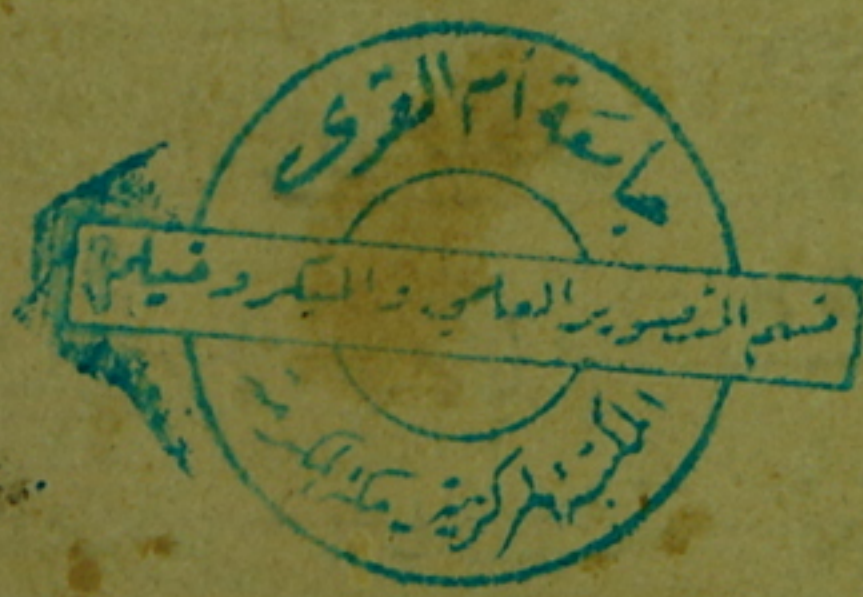 جامعة أم القرى
قسم التصوير العلمي والميكروفيلمي
المكتبة المركزية - مكة المكرمة